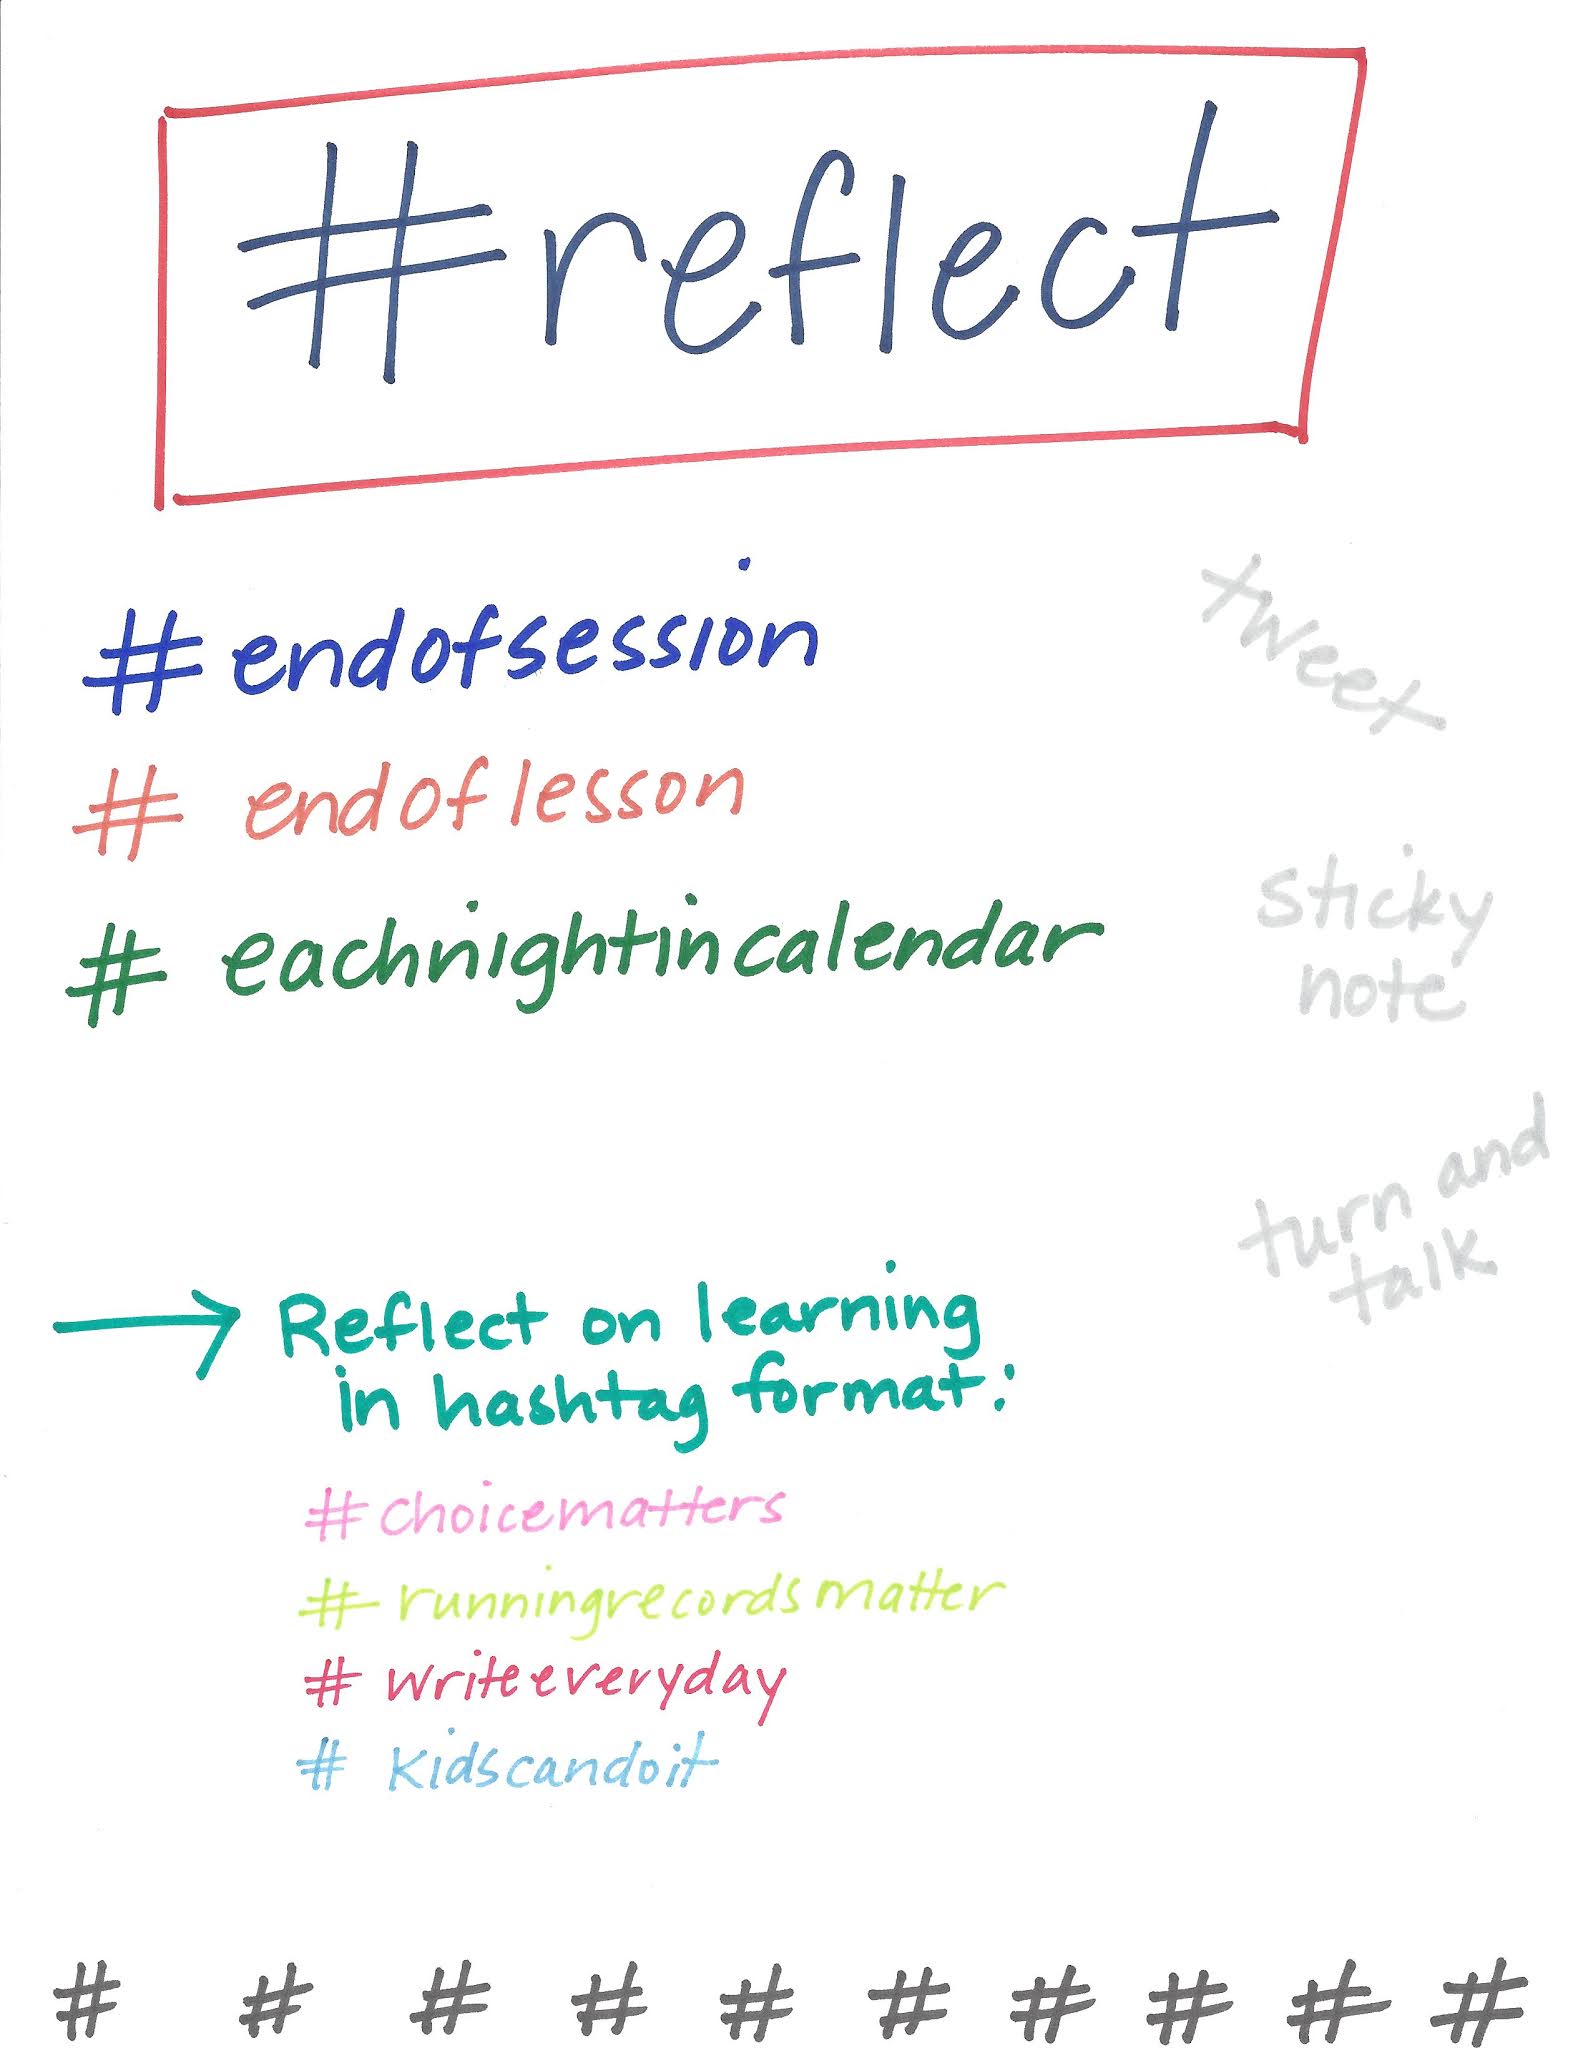 #reflect
#endofsession
tweet
# endoflesson
sticky
note
# eachnightincalendar
turn and
talk
→ Reflect on learning
in hashtag format:
#choicematters
# runningrecordsmatter
# writeeveryday
# kidscandoit
# # # # # # # # # #